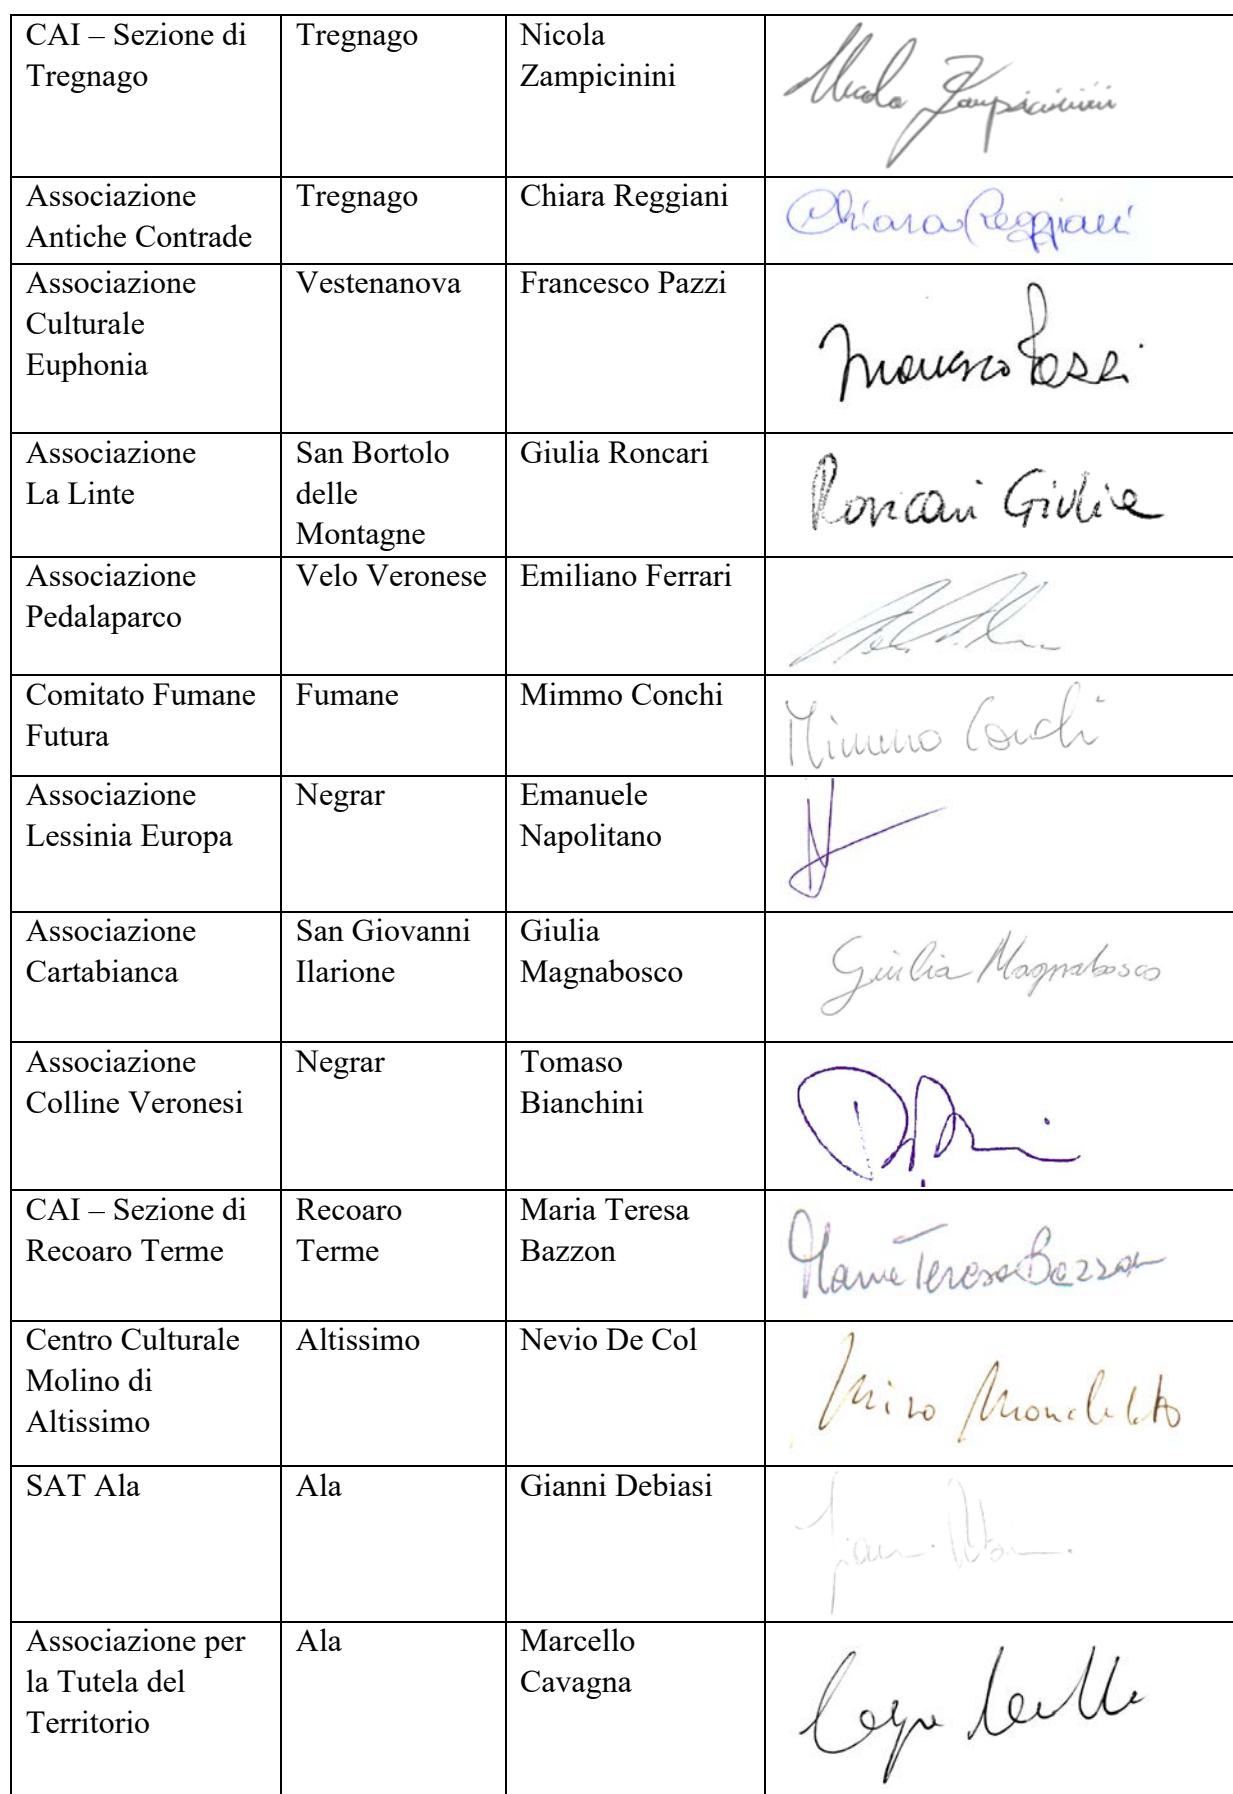 CAI – Sezione di
Tregnago
Tregnago
Nicola
Zampicinini
Nicola Zampicinini
Associazione
Antiche Contrade
Tregnago
Chiara Reggiani
Chiara Reggiani
Associazione
Culturale
Euphonia
Vestenanova
Francesco Pazzi
Francesco Pazzi
Associazione
La Linte
San Bortolo
delle
Montagne
Giulia Roncari
Roncari Giulia
Associazione
Pedalaparco
Velo Veronese
Emiliano Ferrari
Comitato Fumane
Futura
Fumane
Mimmo Conchi
Mimmo Conchi
Associazione
Lessinia Europa
Negrar
Emanuele
Napolitano
Associazione
Cartabianca
San Giovanni
Ilarione
Giulia
Magnabosco
Giulia Magnabosco
Associazione
Colline Veronesi
Negrar
Tomaso
Bianchini
CAI – Sezione di
Recoaro Terme
Recoaro
Terme
Maria Teresa
Bazzon
Maria Teresa Bazzon
Centro Culturale
Molino di
Altissimo
Altissimo
Nevio De Col
SAT Ala
Ala
Gianni Debiasi
Associazione per
la Tutela del
Territorio
Ala
Marcello
Cavagna